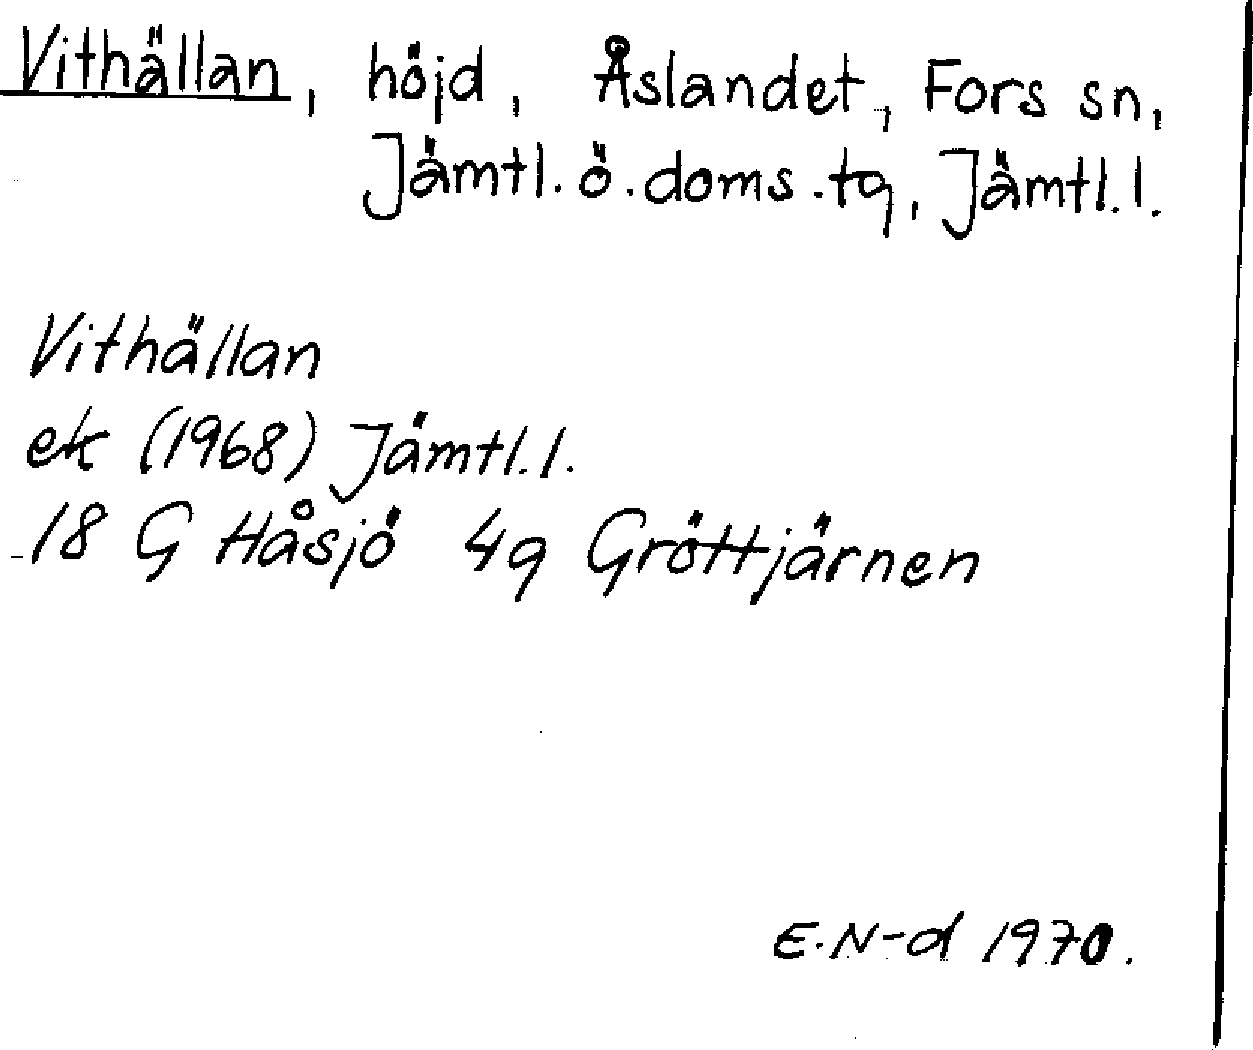 Vithällan, höjd, Åslandet, Fors sn,
Jämtl. ö. doms. tg, Jämtl. l.
Vithällan
ek (1968) Jämtl. l.
18 G Håsjö 4g Gröttjärnen
E. N-d 1970.